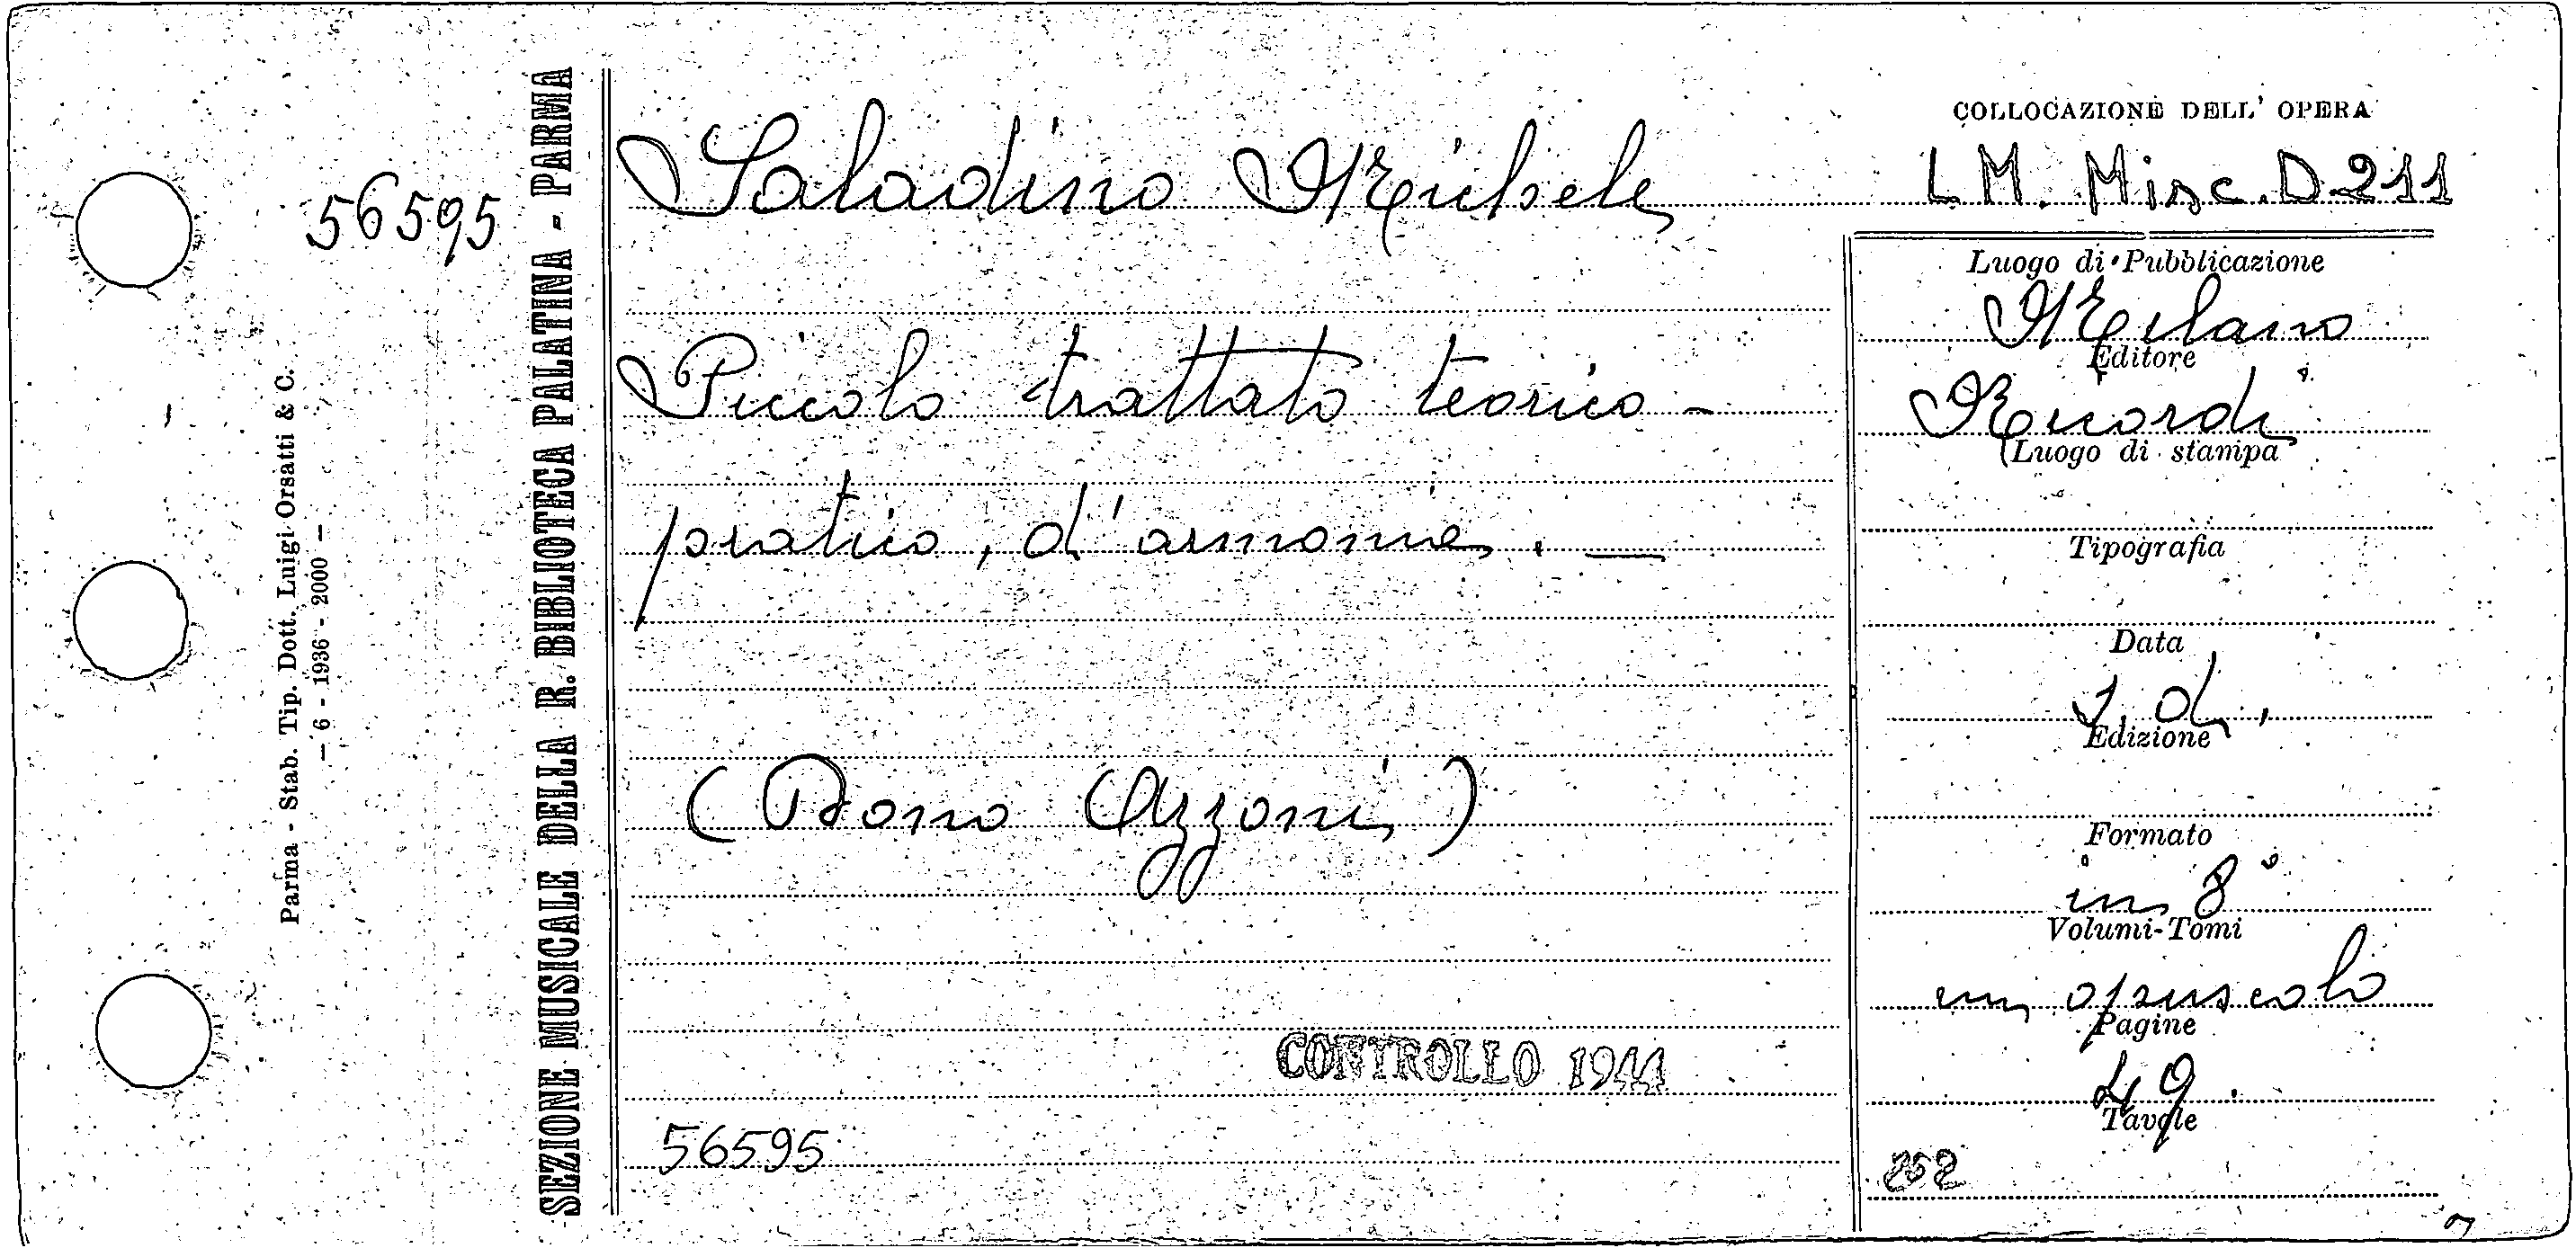 56595
Parma - Stab. Tip. Dott. Luigi Orsatti & C.
— 6 - 1936 - 2000 —
SEZIONE MUSICALE DELLA R. BIBLIOTECA PALATINA - PARMA
Saladino Michele
Piccolo trattato teorico -
pratico, d'armonia. —
(Dono Azzoni)
CONTROLLO 1944
56595
COLLOCAZIONE DELL' OPERA
L M. Misc. D 211
Luogo di Pubblicazione
Milano
Editore
Ricordi
Luogo di stampa
Tipografia
Data
s. d.
Edizione
Formato
in 8°
Volumi-Tomi
un opuscolo
Pagine
49.
Tavole
252